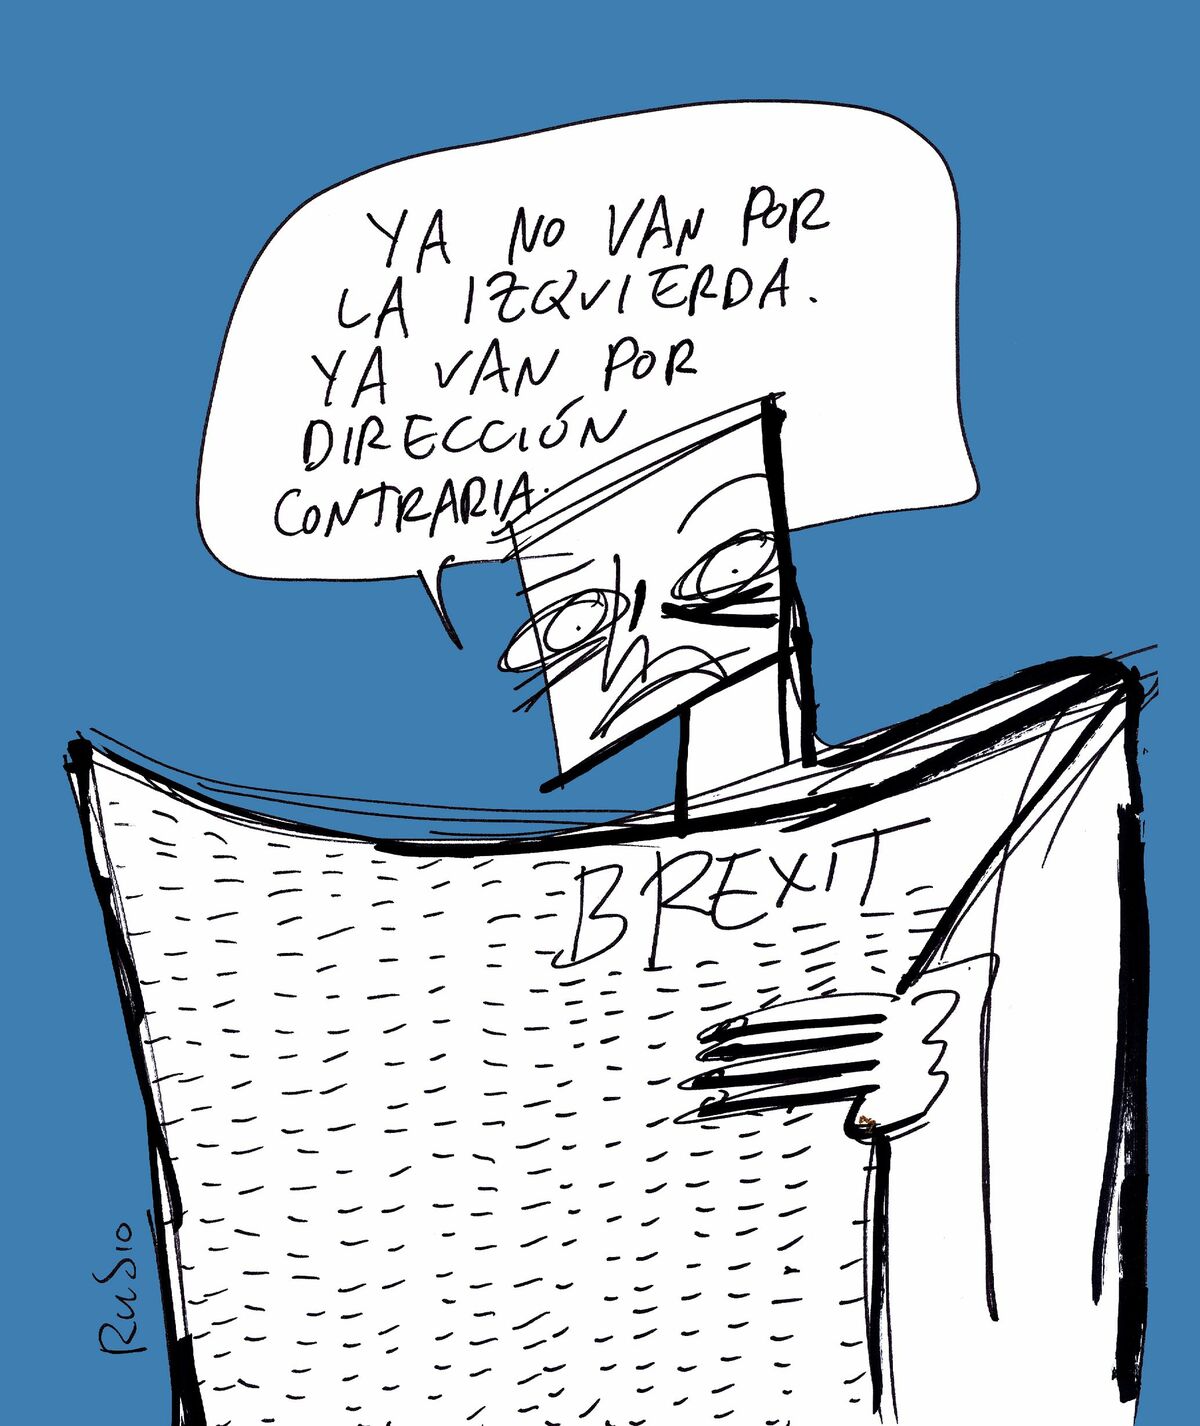 YA NO VAN POR
LA IZQUIERDA.
YA VAN POR
DIRECCIÓN
CONTRARIA.
BREXIT
RUBIO